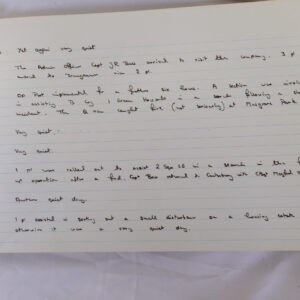 Yet again very quiet
The Admin Officer Capt JR Bass arrived to visit the company. 3 pl
moved to Drumadd vice 2 pl.
Op Rat implemented for a further six hours. A section was involved
in assisting B Coy 1 Green Howards in a search following a
incident. The Q van caught fire (not seriously) at Musgrave Park
Very quiet.
Very quiet.
1 pl was called out to assist 2 Sqn in a search in the
up operation after a find. Capt Bass returned to Canterbury with CSgt
Another quiet day.
1 pl assisted in sorting out a small disturbance on a housing estate
otherwise it was a very quiet day.